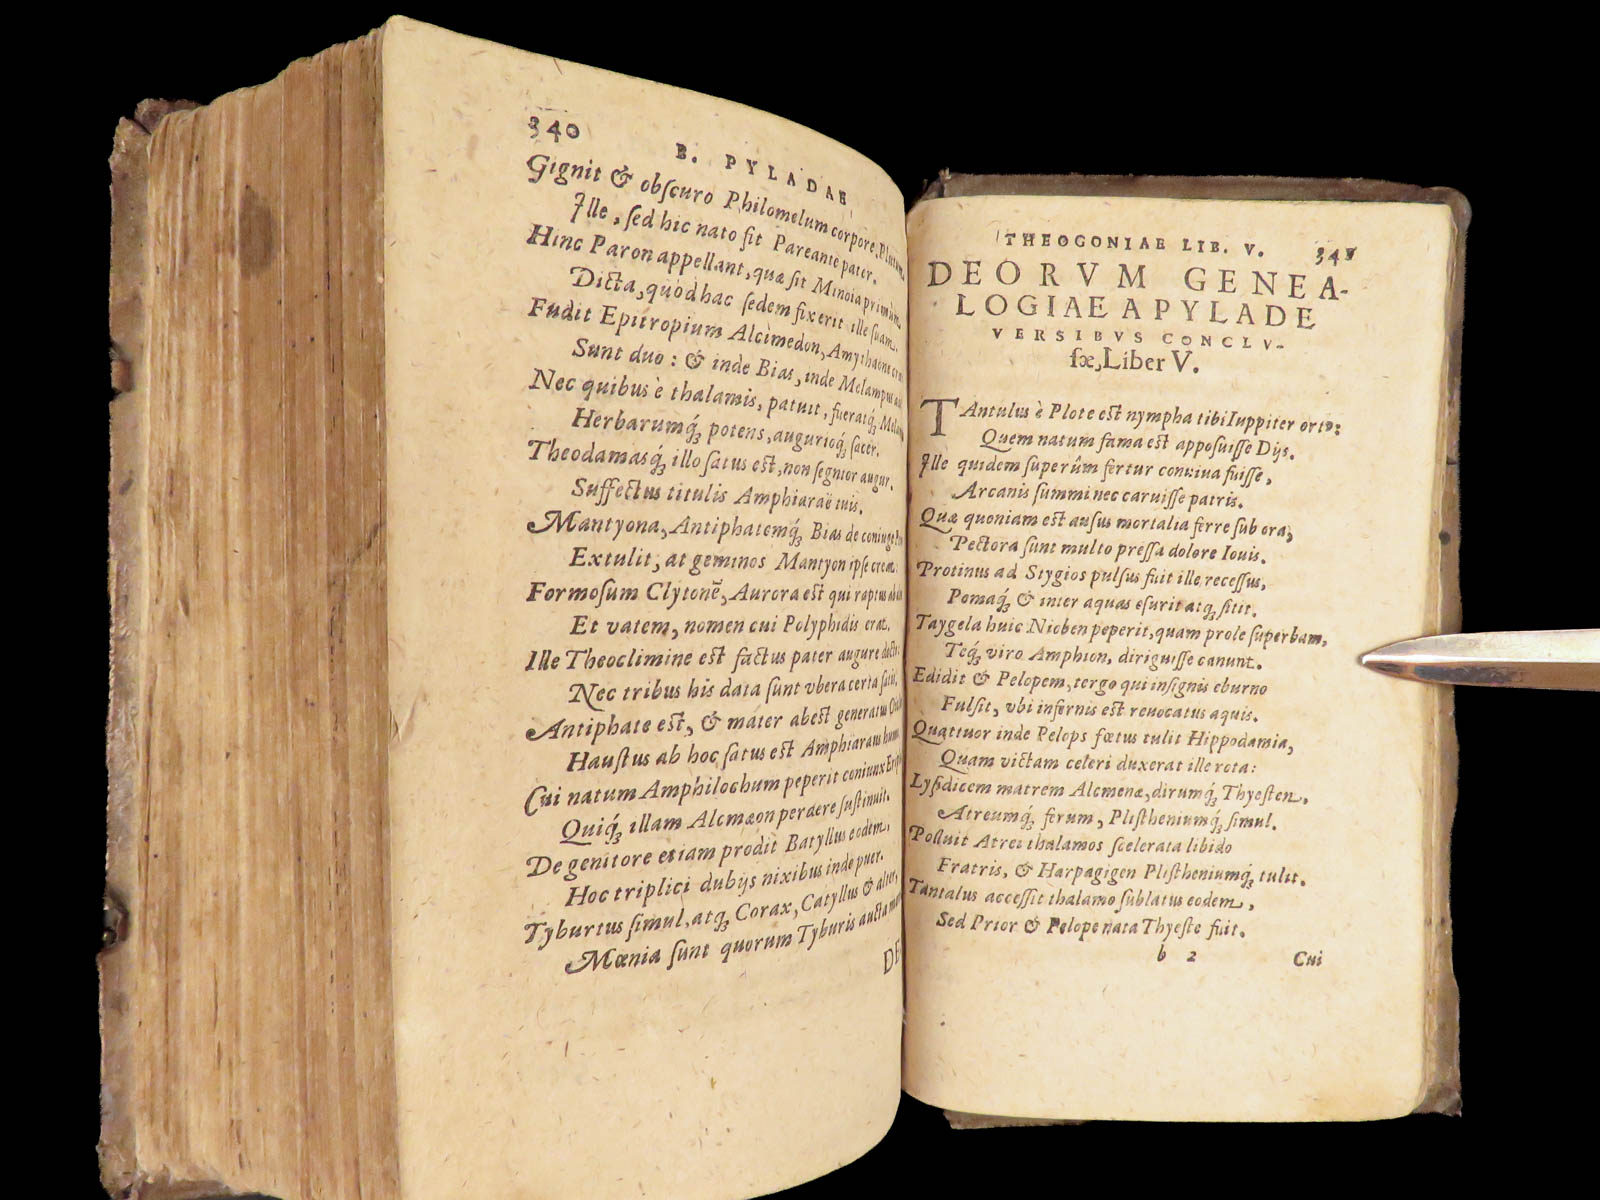 340
B. PYLADAE
Gignit & obſcuro Philomelum corpore,
Ille, ſed hic nato ſit Pareante pater.
Hinc Paron appellant, quæ ſit Minoia
Dicta, quòd hac ſedem fixerit ille ſuam.
Fudit Epitropium Alcimedon,
Sunt duo: & inde Bias, inde
Nec quibus è thalamis, patuit, fueratq́;
Herbarumq́; potens, augurioq́; ſacer.
Theodamasq́; illo ſatus eſt, non ſegnior augur.
Suffectus titulis Amphiaraë tuis.
Mantyona, Antiphatemq́; Bias de
Extulit, at geminos Mantyon ipſe
Formoſum Clytonē, Aurora eſt qui raptus
Et vatem, nomen cui Polyphidis erat.
Ille Theoclimine eſt factus pater augure
Nec tribus his data ſunt vbera certa
Antiphate eſt, & mater abeſt generatus
Hauſtus ab hoc ſatus eſt Amphiaraus
Cui natum Amphilochum peperit coniunx
Quiq́; illam Alcmæon perdere ſuſtinuit.
De genitore etiam prodit Batyllus eodem,
Hoc triplici dubijs nixibus inde puer.
Tyburtus ſimul, atq́; Corax, Catyllus & alter,
Mœnia ſunt quorum Tyburis aucta
DE
THEOGONIAE LIB. V. 341
DEORVM GENEA-
LOGIAE A PYLADE
VERSIBVS CONCLV-
ſæ, Liber V.
TAntulus è Plote eſt nympha tibi Iuppiter orto:
Quem natum fama eſt appoſuiſſe Dijs.
Ille quidem ſuperûm fertur conuiua fuiſſe,
Arcanis ſummi nec caruiſſe patris.
Quæ quoniam eſt auſus mortalia ferre ſub ora,
Pectora ſunt multo preſſa dolore Iouis.
Protinus ad Stygios pulſus fuit ille receſſus,
Pomaq́; & inter aquas eſurit atq; ſitit.
Taygela huic Nioben peperit, quam prole ſuperbam,
Teq́; viro Amphion, diriguiſſe canunt.
Edidit & Pelopem, tergo qui inſignis eburno
Fulſit, vbi infernis eſt reuocatus aquis.
Quattuor inde Pelops fœtus tulit Hippodamia,
Quam victam celeri duxerat ille rota:
Lyſidicem matrem Alcmenæ, dirumq́; Thyeſten,
Atreumq́; ferum, Pliſtheniumq́; ſimul.
Polluit Atrei thalamos ſcelerata libido
Fratris, & Harpagigen Pliſtheniumq́; tulit.
Tantalus acceſſit thalamo ſublatus eodem,
Sed Prior & Pelope nata Thyeſte fuit.
b 2 Cui